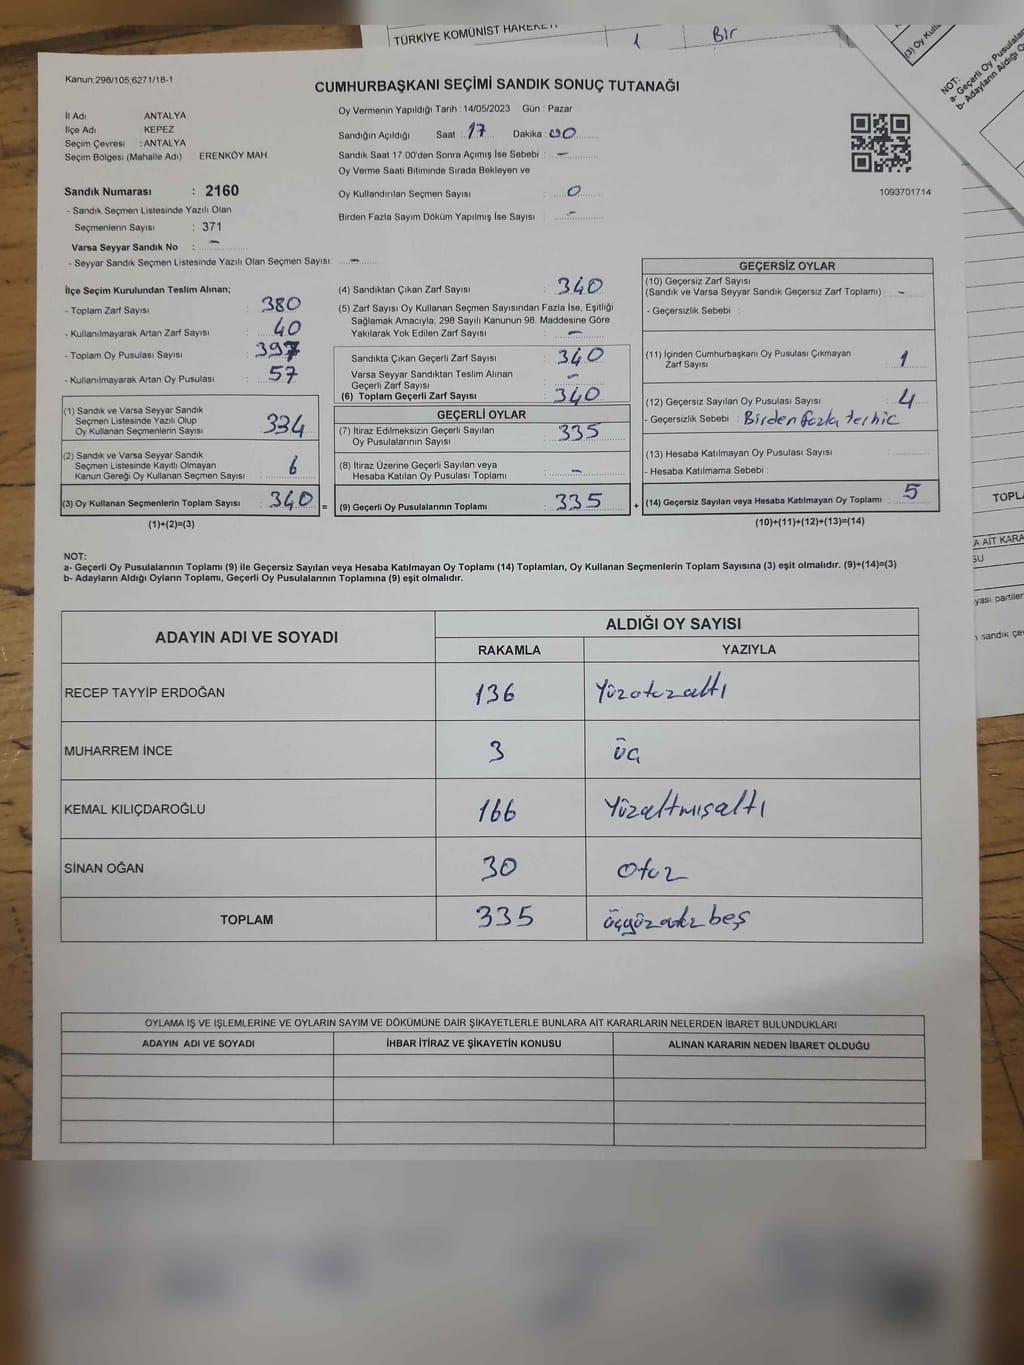 TÜRKİYE KOMÜNİST HAREKETİ
1
Bir
(3) Oy Kulla
NOT:
a- Geçerli Oy Pusulaların
b- Adayların Aldığı O
Kanun;298/105;6271/18-1
CUMHURBAŞKANI SEÇİMİ SANDIK SONUÇ TUTANAĞI
İl Adı ANTALYA
İlçe Adı KEPEZ
Seçim Çevresi : ANTALYA
Seçim Bölgesi (Mahalle Adı) ERENKÖY MAH.
Sandık Numarası : 2160
- Sandık Seçmen Listesinde Yazılı Olan
Seçmenlerin Sayısı : 371
Varsa Seyyar Sandık No : -
- Seyyar Sandık Seçmen Listesinde Yazılı Olan Seçmen Sayısı: -
Oy Vermenin Yapıldığı Tarih : 14/05/2023 Gün : Pazar
Sandığın Açıldığı Saat : 17 Dakika : 00
Sandık Saat 17:00'den Sonra Açımış İse Sebebi : -
Oy Verme Saati Bitiminde Sırada Bekleyen ve
Oy Kullandırılan Seçmen Sayısı : 0
Birden Fazla Sayım Döküm Yapılmış İse Sayısı : -
1093701714
İlçe Seçim Kurulundan Teslim Alınan;
- Toplam Zarf Sayısı : 380
- Kullanılmayarak Artan Zarf Sayısı : 40
- Toplam Oy Pusulası Sayısı : 397
- Kullanılmayarak Artan Oy Pusulası : 57
(1) Sandık ve Varsa Seyyar Sandık
Seçmen Listesinde Yazılı Olup
Oy Kullanan Seçmenlerin Sayısı : 334
(2) Sandık ve Varsa Seyyar Sandık
Seçmen Listesinde Kayıtlı Olmayan
Kanun Gereği Oy Kullanan Seçmen Sayısı : 6
(3) Oy Kullanan Seçmenlerin Toplam Sayısı : 340
(1)+(2)=(3)
(4) Sandıktan Çıkan Zarf Sayısı : 340
(5) Zarf Sayısı Oy Kullanan Seçmen Sayısından Fazla İse, Eşitliği
Sağlamak Amacıyla, 298 Sayılı Kanunun 98. Maddesine Göre
Yakılarak Yok Edilen Zarf Sayısı : -
Sandıkta Çıkan Geçerli Zarf Sayısı : 340
Varsa Seyyar Sandıktan Teslim Alınan
Geçerli Zarf Sayısı : -
(6) Toplam Geçerli Zarf Sayısı : 340
GEÇERLİ OYLAR
(7) İtiraz Edilmeksizin Geçerli Sayılan
Oy Pusulalarının Sayısı : 335
(8) İtiraz Üzerine Geçerli Sayılan veya
Hesaba Katılan Oy Pusulası Toplamı : -
= (9) Geçerli Oy Pusulalarının Toplamı : 335 +
GEÇERSİZ OYLAR
(10) Geçersiz Zarf Sayısı
(Sandık ve Varsa Seyyar Sandık Geçersiz Zarf Toplamı) : -
- Geçersizlik Sebebi :
(11) İçinden Cumhurbaşkanı Oy Pusulası Çıkmayan
Zarf Sayısı : 1
(12) Geçersiz Sayılan Oy Pusulası Sayısı : 4
- Geçersizlik Sebebi : Birden fazla tercih
(13) Hesaba Katılmayan Oy Pusulası Sayısı :
- Hesaba Katılmama Sebebi :
(14) Geçersiz Sayılan veya Hesaba Katılmayan Oy Toplamı : 5
(10)+(11)+(12)+(13)=(14)
NOT:
a- Geçerli Oy Pusulalarının Toplamı (9) ile Geçersiz Sayılan veya Hesaba Katılmayan Oy Toplamı (14) Toplamları, Oy Kullanan Seçmenlerin Toplam Sayısına (3) eşit olmalıdır. (9)+(14)=(3)
b- Adayların Aldığı Oyların Toplamı, Geçerli Oy Pusulalarının Toplamına (9) eşit olmalıdır.
ADAYIN ADI VE SOYADI ALDIĞI OY SAYISI
RAKAMLA YAZIYLA
RECEP TAYYİP ERDOĞAN 136 Yüzotuzaltı
MUHARREM İNCE 3 üç
KEMAL KILIÇDAROĞLU 166 Yüzaltmışaltı
SİNAN OĞAN 30 Otuz
TOPLAM 335 üçyüzotuz beş
OYLAMA İŞ VE İŞLEMLERİNE VE OYLARIN SAYIM VE DÖKÜMÜNE DAİR ŞİKAYETLERLE BUNLARA AİT KARARLARIN NELERDEN İBARET BULUNDUKLARI
ADAYIN ADI VE SOYADI İHBAR İTİRAZ VE ŞİKAYETİN KONUSU ALINAN KARARIN NEDEN İBARET OLDUĞU
TOPL
A AİT KARA
SU
yası partiler
sandık çev